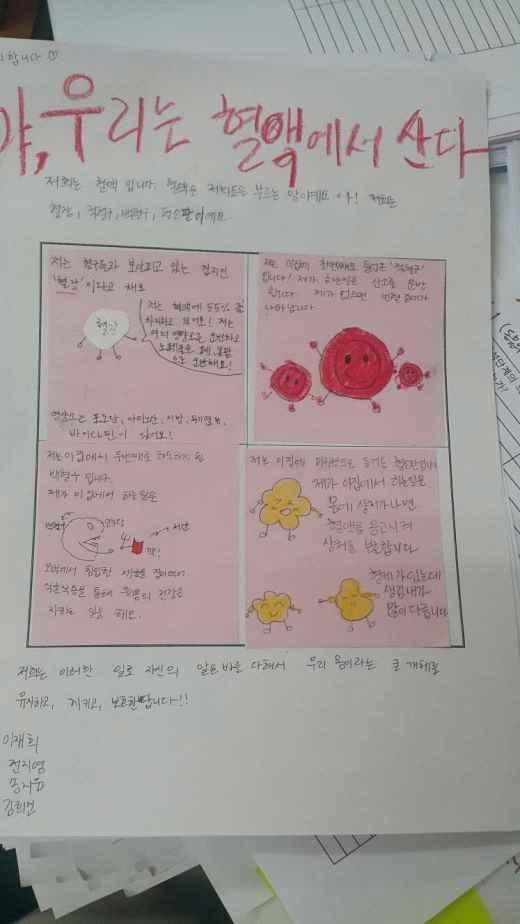 합니다
야, 우리는 혈액에서 산다
저희는 혈액 입니다. 혈액은 저희들을 부르는 말이에요 아! 저희는
혈장, 적혈구, 백혈구, 혈소판이에요
저는 혈구들과 보살피고 있는 집지킨
'혈장' 이라고 해요
저는 혈액에 55% 를
차지하고 있어요! 저는
영양소를 운반하고
노폐물을
으로 운반해요!
혈장
영양소는 포도당, 아미노산, 지방, 무기염류,
바이타민이 있어요!
저는 이집에 첫번째로 들어온 '적혈구'
입니다! 제가 하는일은 산소를 운반
합니다. 제가 없으면 빈혈 증세가
나타납니다.
저는 이집에서 두번째로 하는
백혈구 입니다.
제가 이 집에서 하는 일은
세균
꽥!
외부에서 침입한 세균을 잡아먹어
식균작용을 통해 우리몸의 건강을
지키는 일을 해요.
저는 이집에 마지막으로 들어온 혈소판입니다
제가 이집에서 하는일은
몸에 상처가 나면
혈액을 응고시켜
상처를 보호합니다
형제가 있는데
생김새가
많이 다릅니다.
저희는 이러한 일로 자신의 일을 다해서 우리 몸이라는 큰 개체를
유지하고, 지키고, 보호한답니다~!!
이재희
전지영
송지유
김희선